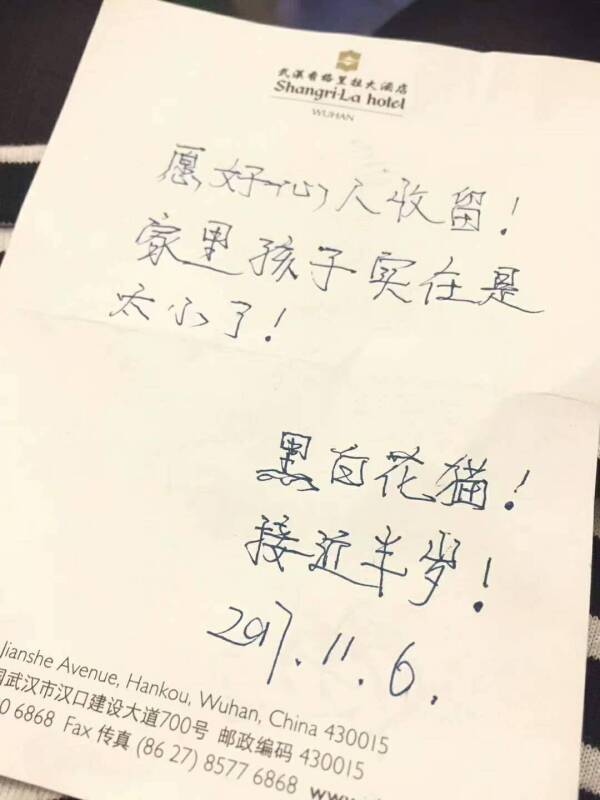 武汉香格里拉大酒店
Shangri-La hotel
WUHAN
愿好心人收留!
家里孩子实在是
太小了!
黑白花猫!
接近半岁!
2017.11.6.
Jianshe Avenue, Hankou, Wuhan, China 430015
国武汉市汉口建设大道700号 邮政编码 430015
0 6868 Fax 传真 (86 27) 8577 6868 www